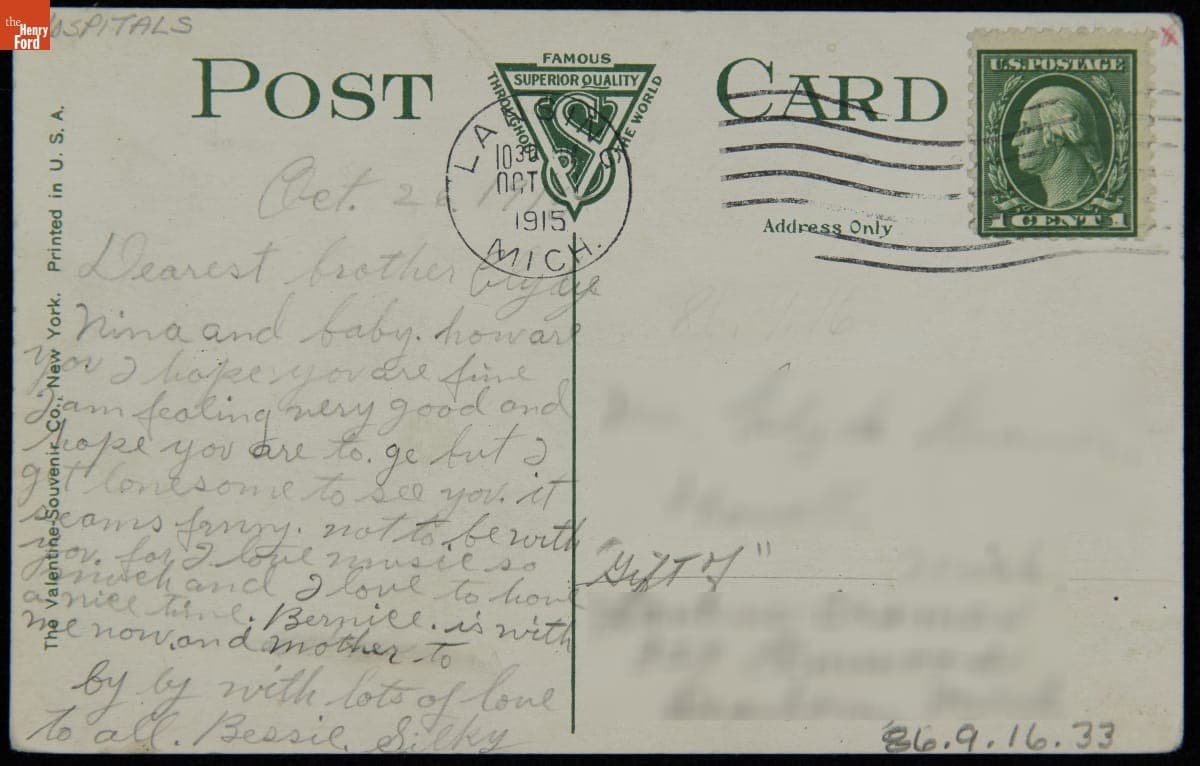 the
Henry
Ford
HOSPITALS
POST CARD
FAMOUS
SUPERIOR QUALITY
THROUGHOUT THE WORLD
U.S. POSTAGE
1 CENT 1
LANSING
10 30
OCT
1915
MICH.
Address Only
The Valentine-Souvenir Co., New York. Printed in U. S. A.
Oct. 2
Dearest brother Clyde
Nina and baby. how are
you I hope you are fine
I am fealing very good and
hope you are to. ge but I
get lonesome to see you. it
seams funny. not to be with
you. for I love music so
much and I love to have
a nice time. Bernice. is with
me now. and mother. to
by by with lots of love
to all. Bessie. Silky
86.9.16
"Gift of"
86.9.16.33